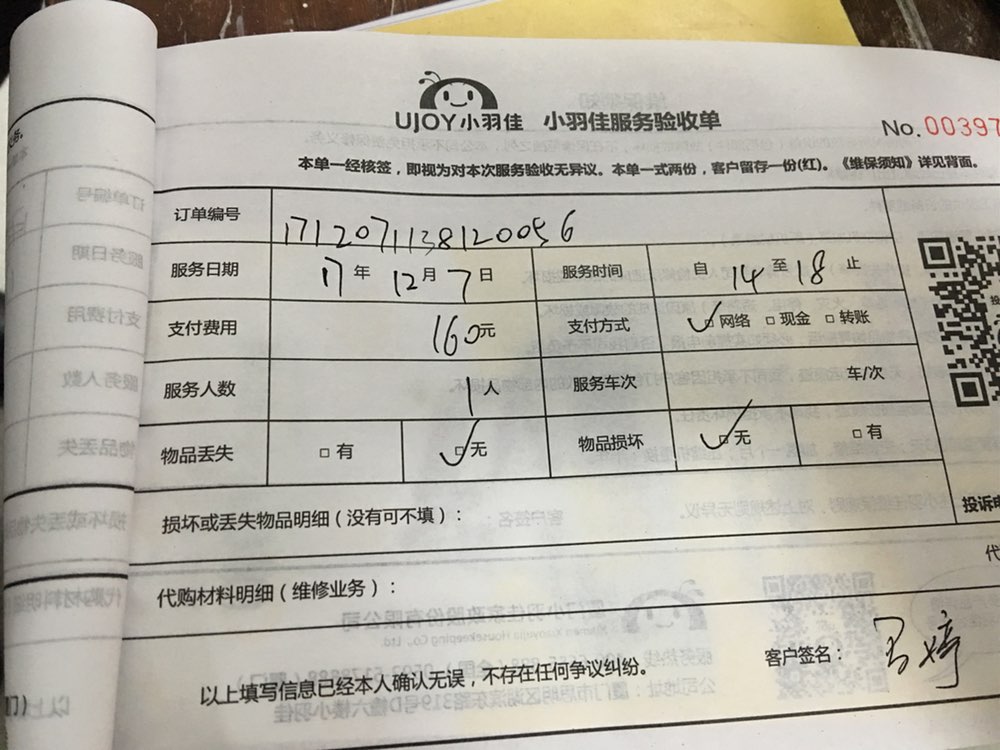 UJOY小羽佳 小羽佳服务验收单
No.00397
本单一经核签，即视为对本次服务验收无异议。本单一式两份，客户留存一份(红)。《维保须知》详见背面。
订单编号 1712071138120056
服务日期 17年12月7日 服务时间 自14至18止
支付费用 160元 支付方式 ☑网络 □现金 □转账
服务人数 1人 服务车次 车/次
物品丢失 □有 ☑无 物品损坏 ☑无 □有
损坏或丢失物品明细（没有可不填）：
投诉
代购材料明细（维修业务）：
代
客户签名：
以上填写信息已经本人确认无误，不存在任何争议纠纷。